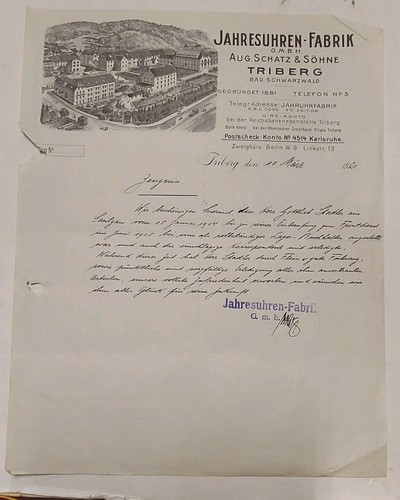 JAHRESUHREN-FABRIK
G.M.B.H.
AUG. SCHATZ & SÖHNE
TRIBERG
BAD. SCHWARZWALD
GEGRÜNDET 1881 TELEFON Nº 3
Telegr.-Adresse: JAHRUHRFABRIK
A.B.C. CODE
GIRO-KONTO
bei der Reichsbanknebenstelle Triberg
Bank-Konto bei der Rheinischen Creditbank Filiale Triberg
Postscheck-Konto Nº 4514 Karlsruhe.
Zweigbüro: Berlin W 9 Linkstr. 13
Triberg, den 10. März
Zeugnis
Wir bescheinigen hiermit, dass Herr Gottlieb Stadler aus
vom 25. Januar bis zu seiner
im Juni als selbständiger Lager- angestellt
war und die einschlägige Korrespondenz mit erledigte.
Während dieser Zeit hat Herr Stadler durch Fleiss & gute Führung,
sowie pünktliche und sorgfältige Erledigung aller ihm anvertrauten
Arbeiten, unsere vollste Zufriedenheit erworben und wünschen wir
ihm alles Glück für seine Zukunft.
Jahresuhren-Fabrik
G. m. b.